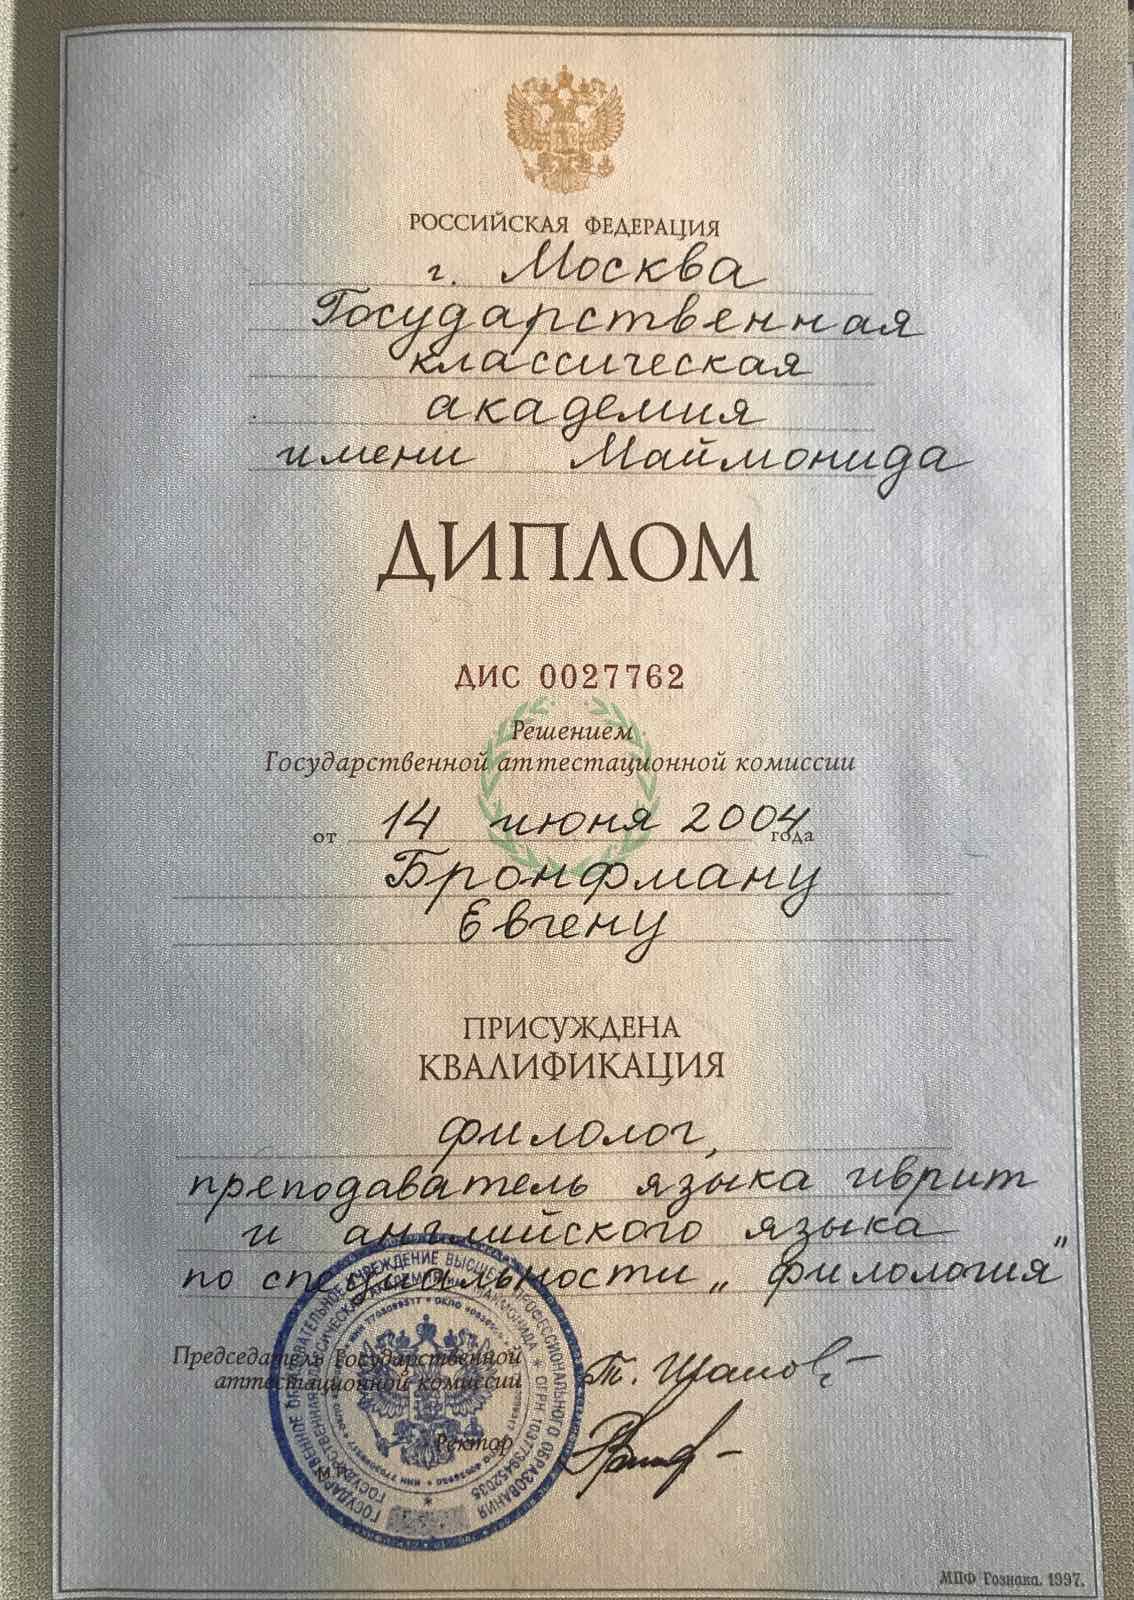 РОССИЙСКАЯ ФЕДЕРАЦИЯ
г. Москва
Государственная
классическая
академия
имени Маймонида
ДИПЛОМ
ДИС 0027762
Решением
Государственной аттестационной комиссии
от 14 июня 2004 года
Бронфману
Евгену
ПРИСУЖДЕНА
КВАЛИФИКАЦИЯ
филолог,
преподаватель языка иврит
и английского языка
по специальности „филология"
Председатель Государственной
аттестационной комиссии
Ректор
ГОСУДАРСТВЕННОЕ ОБРАЗОВАТЕЛЬНОЕ УЧРЕЖДЕНИЕ ВЫСШЕГО ПРОФЕССИОНАЛЬНОГО ОБРАЗОВАНИЯ
МПФ Гознака. 1997.